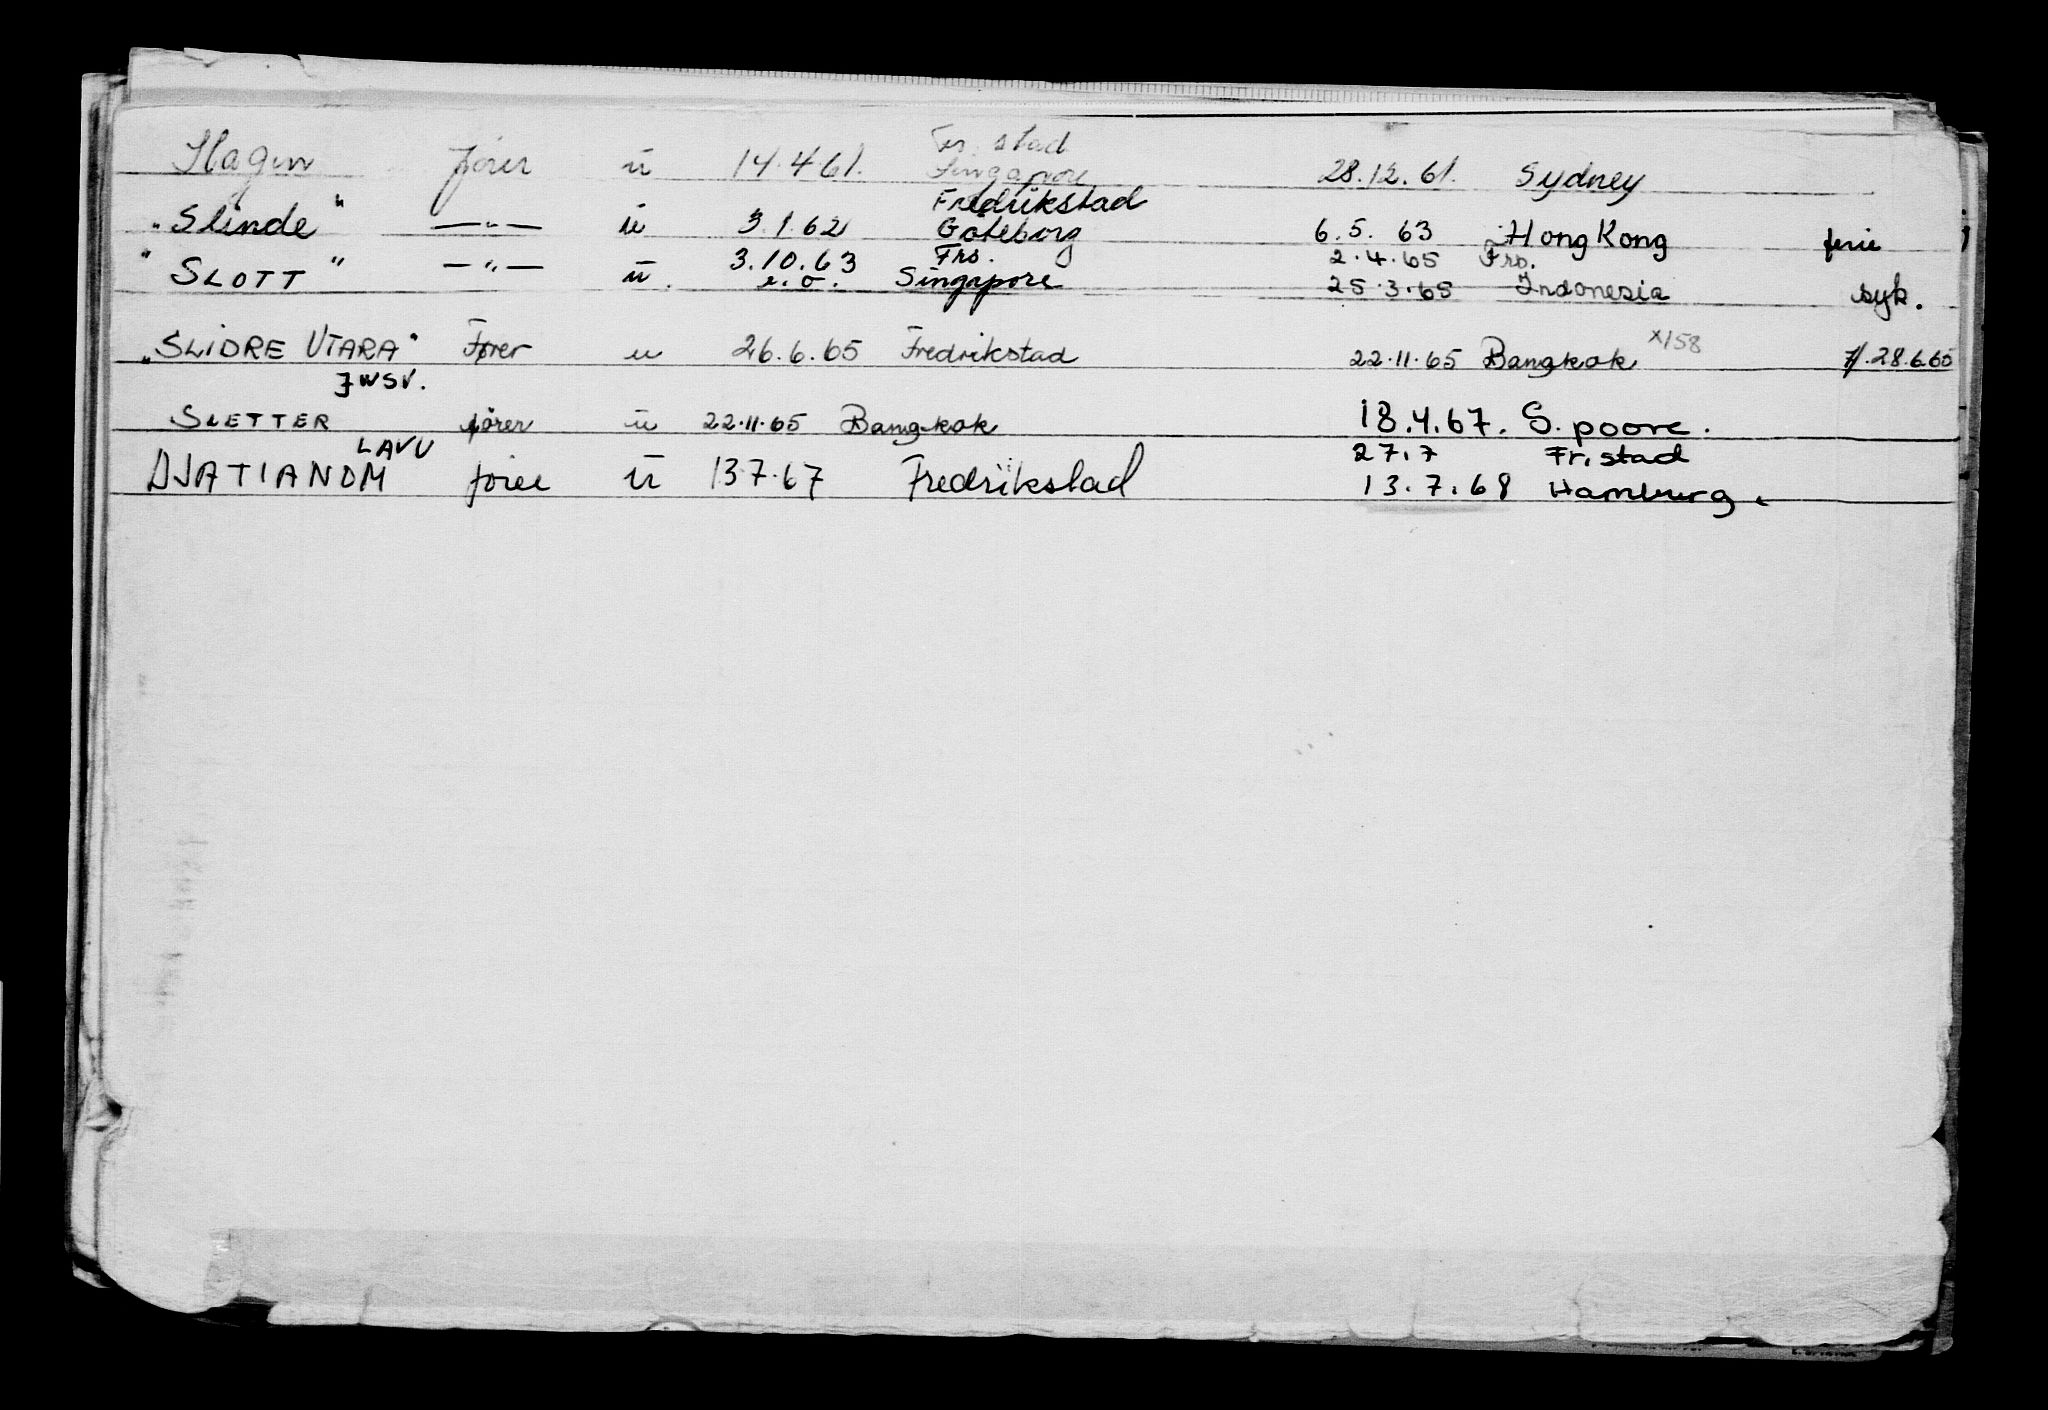 Slagen fører u 14.4.61. Fr. stad Singapore 28.12.61. Sydney
"Slinde" —"— u 3.1.62 Fredrikstad Gøteborg 6.5.63 Hong Kong ferie
"SLOTT" —"— u. 3.10.63 Frs. 2.4.65 Frs.
e.o. Singapore 25.3.65 Indonesia syk.
"SLIDRE UTARA" Fører u 26.6.65 Fredrikstad 22.11.65 Bangkok x/158 28.6.65
JWSV.
SLETTER fører u 22.11.65 Bangkok 18.4.67. S. poore.
DJATIANOM LAVU fører u 13.7.67 Fredrikstad 27.7 Fr. stad
13.7.68 Hamburg.